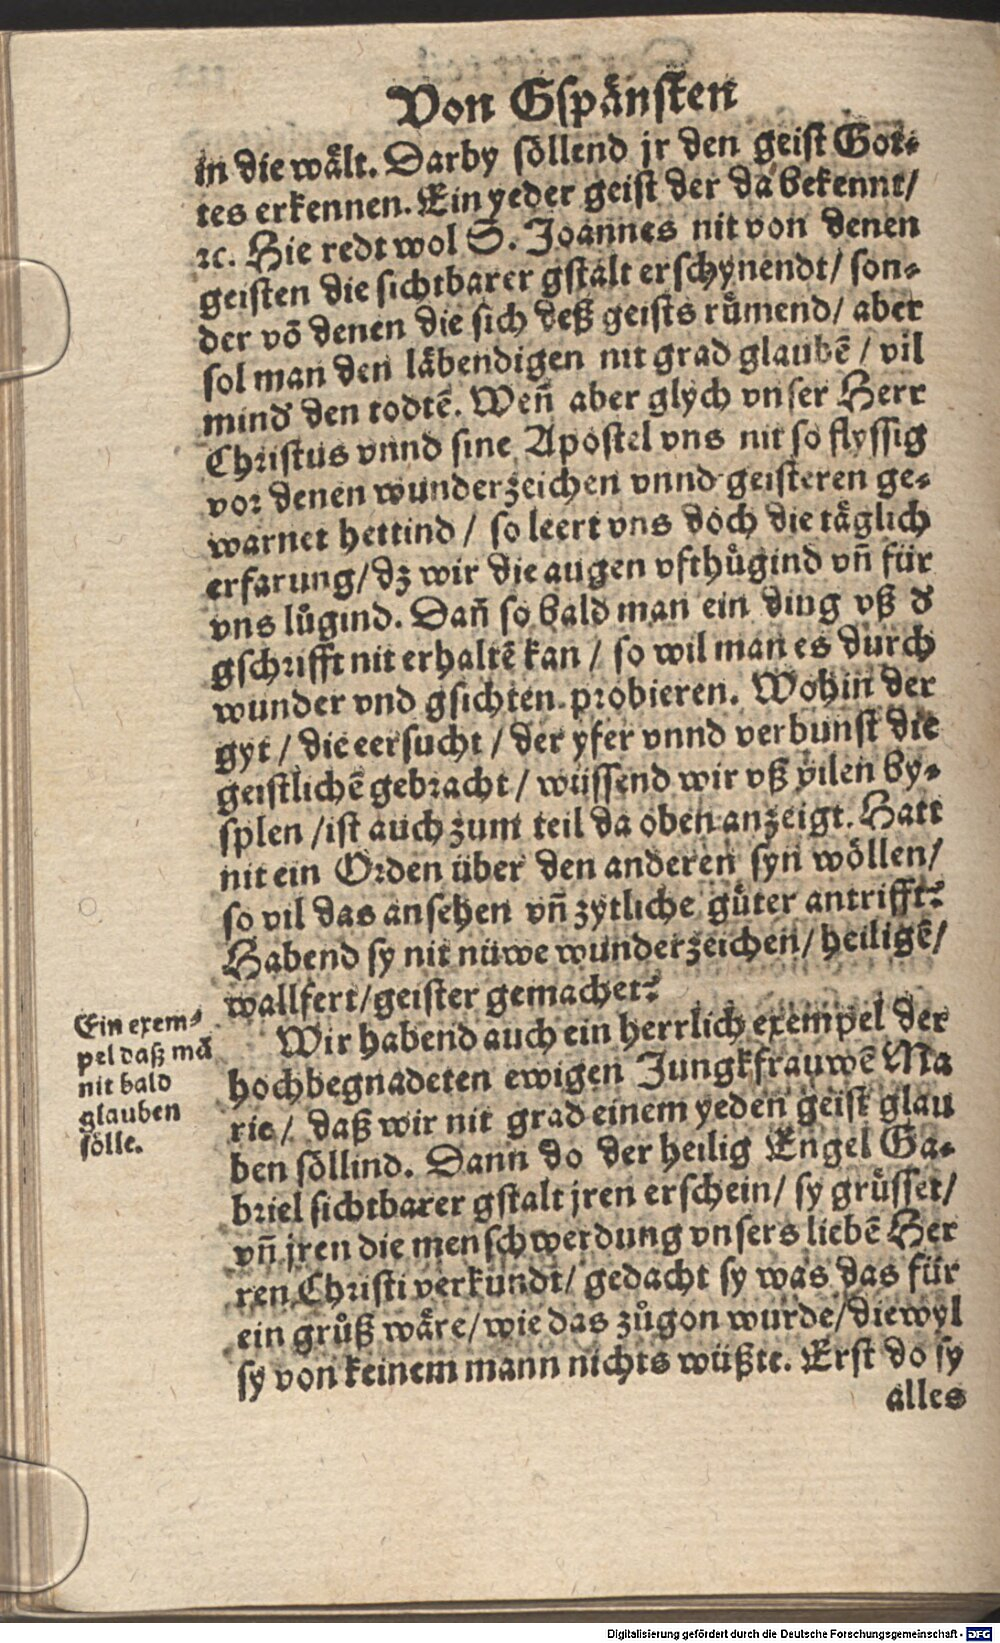 Von Gspånsten
in die wålt. Darby söllend jr den geist Got-
tes erkennen. Ein yeder geist der da bekennt/
ꝛc. Hie redt wol S. Joannes nit von denen
geisten die sichtbarer gstalt erschynendt/ son-
der võ denen die sich deß geists růmend/ aber
sol man den låbendigen nit grad glaubẽ / vil
mind den todtẽ. Weñ aber glych vnser Herr
Christus vnnd sine Apostel vns nit so flyssig
vor denen wunderzeichen vnnd geisteren ge-
warnet hettind / so leert vns doch die tåglich
erfarung/ dz wir die augen vfthůgind vñ für
vns lůgind. Dañ so bald man ein ding vß d
gschrifft nit erhaltẽ kan / so wil man es durch
wunder vnd gsichten probieren. Wohin der
gyt / die eersucht / der yfer vnnd verbunst die
geistlichẽ gebracht / wüssend wir vß vilen by-
splen /ist auch zum teil da oben anzeigt. Hatt
nit ein Orden über den anderen syn wöllen/
so vil das ansehen vñ zytliche gůter antrifft?
Habend sy nit nüwe wunderzeichen/ heiligẽ/
wallfert/geister gemachet?
Ein exem-
pel daß mã
nit bald
glauben
sölle.
Wir habend auch ein herrlich exempel der
hochbegnadeten ewigen Jungkfrauwẽ Ma
rie/ daß wir nit grad einem yeden geist glau
ben söllind. Dann do der heilig Engel Ga-
briel sichtbarer gstalt jren erschein/ sy grůsset/
vñ jren die menschwerdung vnsers liebẽ Her
ren Christi verkundt/ gedacht sy was das für
ein grůß wåre/ wie das zůgon wurde/ diewyl
sy von keinem mann nichts wüßte. Erst do sy
alles
Digitalisierung gefördert durch die Deutsche Forschungsgemeinschaft - DFG